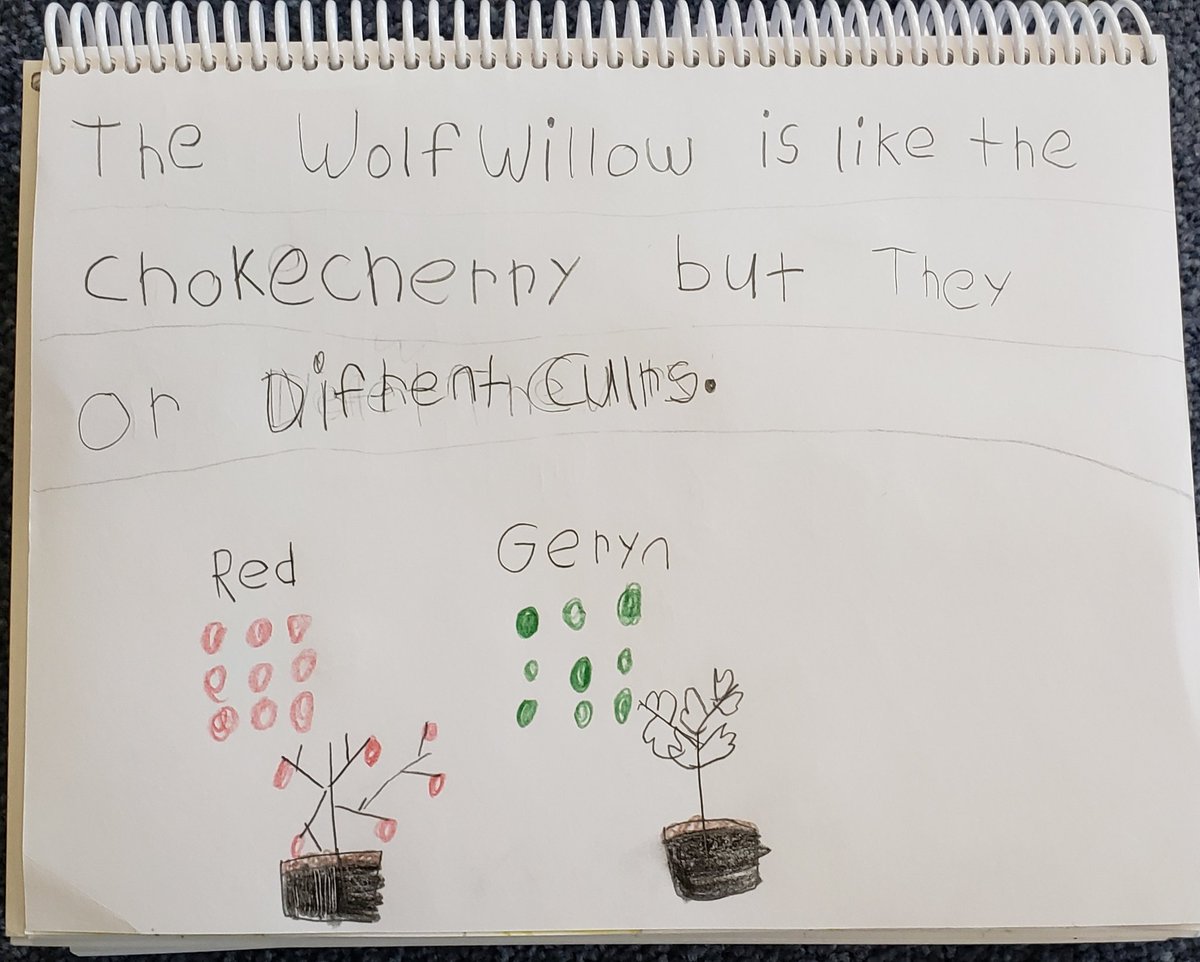 The Wolf Willow is like the
chokecherry but They
or Diffrent Cullrs.
Red Geryn